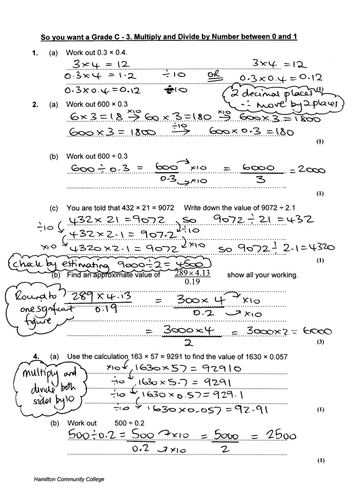 So you want a Grade C - 3. Multiply and Divide by Number between 0 and 1
1. (a) Work out 0.3 × 0.4.
3 × 4 = 12
3 × 4 = 12
0.3 × 4 = 1.2 ÷10 OR 0.3 × 0.4 = 0.12
0.3 × 0.4 = 0.12 ÷10
2 decimal places
∴ move by 2 places
2. (a) Work out 600 × 0.3
6 × 3 = 18 ×10→ 60 × 3 = 180 ×10→ 600 × 3 = 1800
600 × 3 = 1800 ÷10→ 600 × 0.3 = 180
(1)
(b) Work out 600 ÷ 0.3
600 ÷ 0.3 = 600 ×10 = 6000 = 2000
0.3 ×10 3
(1)
(c) You are told that 432 × 21 = 9072 Write down the value of 9072 ÷ 2.1
432 × 21 = 9072 so 9072 ÷ 21 = 432
÷10 432 × 2.1 = 907.2 ÷10
×10 4320 × 2.1 = 9072 ×10 so 9072 ÷ 2.1 = 4320
(1)
check by estimating 9000÷2 = 4500
(b) Find an approximate value of 289 × 4.13 show all your working.
0.19
Round to one significant figure
289 × 4.13 = 300 × 4 ×10
0.19 0.2 ×10
= 3000 × 4 = 3000 × 2 = 6000
2
(3)
4. (a) Use the calculation 163 × 57 = 9291 to find the value of 1630 × 0.057
multiply and divide both sides by 10
×10 1630 × 57 = 92910
÷10 1630 × 5.7 = 9291
÷10 1630 × 0.57 = 929.1
÷10 1630 × 0.057 = 92.91
(1)
(b) Work out 500 ÷ 0.2
500 ÷ 0.2 = 500 ×10 = 5000 = 2500
0.2 ×10 2
(1)
Hamilton Community College